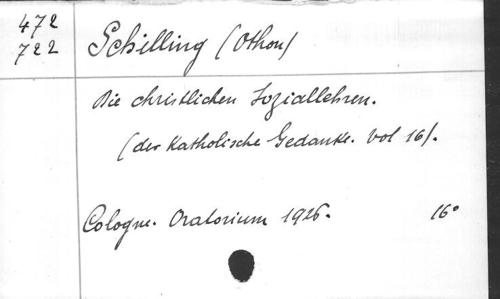 472
722
Schilling (Othon)
Die christlichen Soziallehren.
(der Katholische Gedanke. Vol 16).
Cologne. Oratorium 1926. 16°